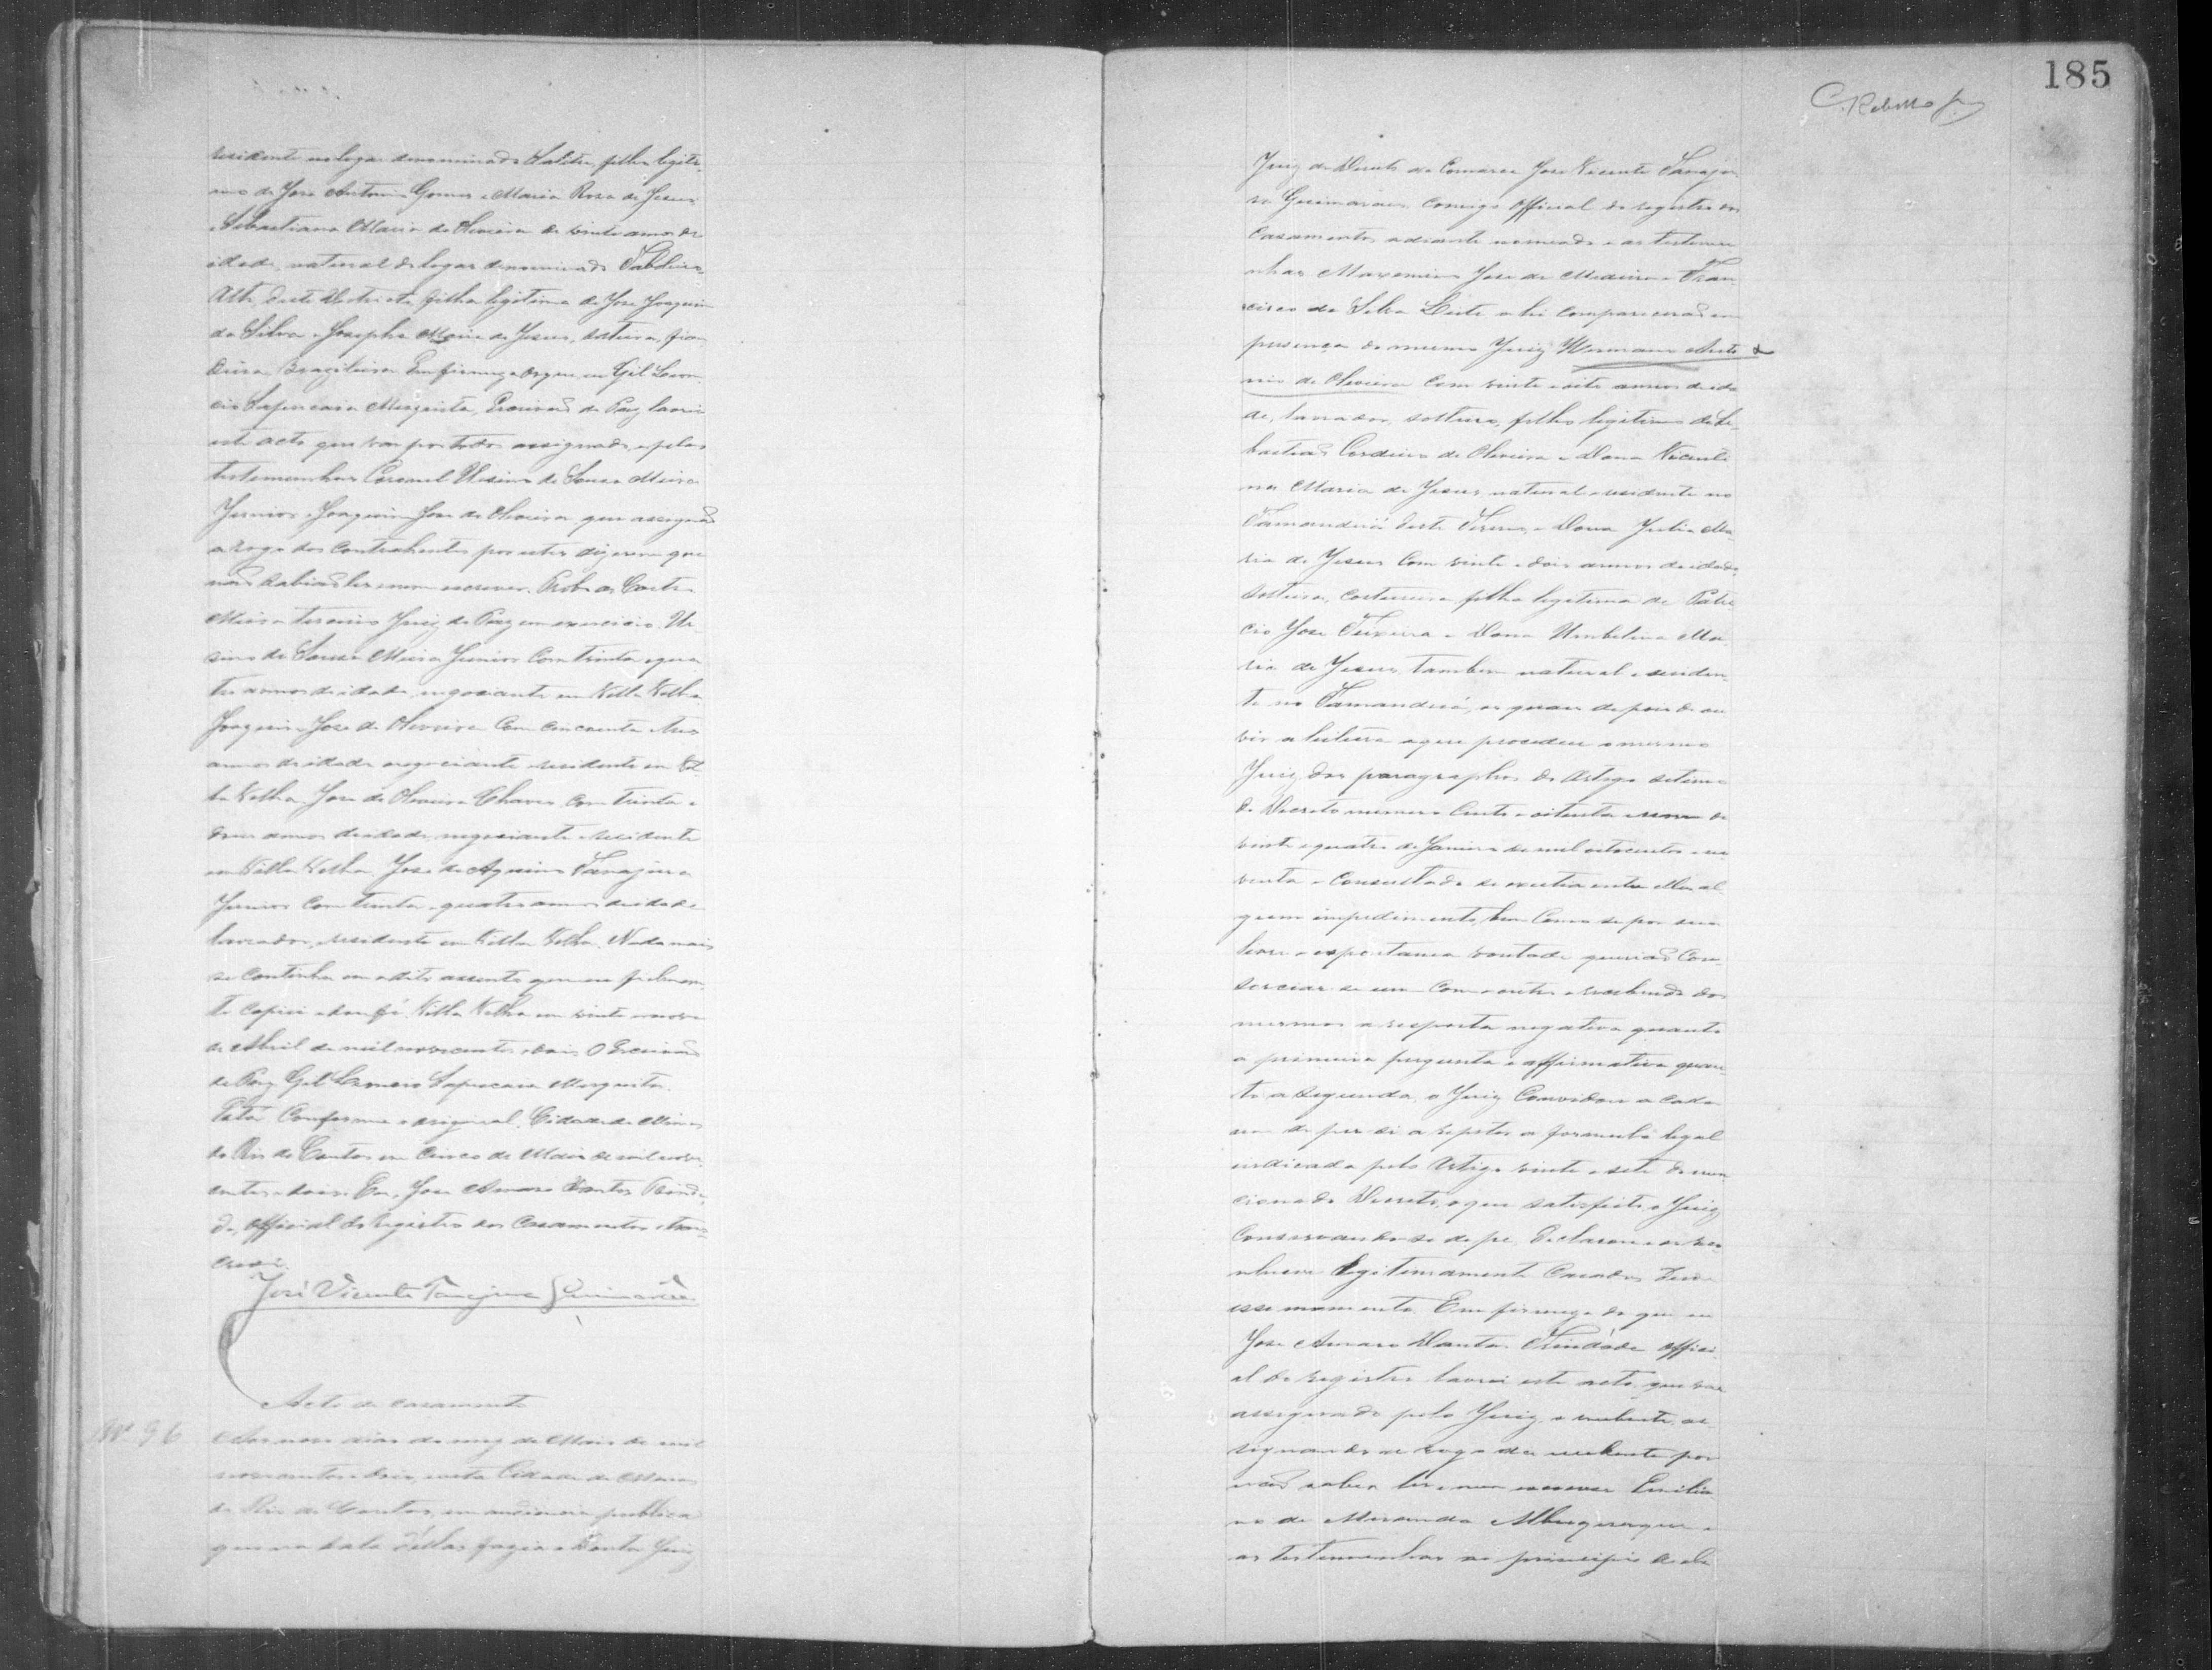 residente no logar denominado Salitre, filho legiti-
mo de Jose Antonio Gomes e Maria Rosa de Jesus,
e Sebastiana Maria de Oliveira de vinte annos de
idade, natural do logar denominado Taboleiro
Alto, deste Districto filha legitima de Jose Joaquim
da Silva e Josepha Maria de Jesus, solteira, fian-
deira, Brazileira. Em firmeza do que eu Gil Leon-
cio Sapucaia Mesquita, Escrivaõ de Paz lavrei
este acto que vai por todos assignado, e pelas
testemunhas Coronel Ursino de Souza Meira
Junior e Joaquim Jose de Oliveira, que assignaõ
a rogo dos contrahentes por estes dizerem que
naõ sabiaõ ler e nem escrever. de Castro
Meira terceiro Juiz de Paz em exercicio. Ur-
sino de Souza Meira Junior com trinta e qua-
tro annos de idade, negociante em Villa Velha.
Joaquim Jose de Oliveira com cincoenta e tres
annos de idade negociante e residente em Vil-
la Velha. Jose de Oliveira Chaves com trinta e
annos de idade, negociante e residente
em Villa Velha. Jose de Aquino Tanajura
Junior com trinta e quatro annos de idade
lavrador, residente em Villa Velha. Nada mais
se continha em o dito assento que eu fielmen-
te copiei e dou fé. Villa Velha em vinte e nove
de Abril de mil novecentos e dois. O Escrivaõ
de Paz Gil Leoncio Sapucaia Mesquita.
Está conforme o original. Cidade de Minas
do Rio de Contas em cinco de Maio de mil nove
centos e dois. Eu, Jose Amaro Dantas Trinda-
de, official do registro dos casamentos o trans-
crevi.
José Vicente Tanajura Guimarães
Acto de casamento
Nº 96
Aos nove dias do mez de Maio de mil
novecentos e dois, nesta Cidade de Minas
do Rio de Contas, em audiencia publica
que na sala dellas fazia o Doutor Juiz
185
C. Rebello Jr
Juiz de Direito da Comarca Jose Vicente Tanaju-
ra Guimarães, comigo official do registro dos
casamentos adiante nomeado e as testemu-
nhas Maximino Jose de Medeiros e Fran-
cisco da Silva Leite ahi compareceraõ em
presença do mesmo Juiz Hermano Anto
nio de Oliveira com vinte e oito annos de ida
de, lavrador, solteiro, filho legitimo de Se-
bastiaõ Cordeiro de Oliveira e Dona Vicenti
na Maria de Jesus, natural e residente no
Tamanduá deste Termo, e Dona Julia Ma-
ria de Jesus com vinte e dois annos de idade,
solteira, costureira filha legitima de Patri-
cio Jose Teixeira e Dona Umbelina Ma-
ria de Jesus, tambem natural e residen-
te no Tamanduá, os quaes depois de ou-
vir a leitura a que procedeu o mesmo
Juiz, dos paragraphos do Artigo setimo
do Decreto numero cento e oitenta e um de
vinte e quatro de Janeiro de mil oitocentos e no
venta e consultado se existia entre elles al-
gum impedimento, bem como se por sua
livre e espontanea vontade queriaõ con-
sorciar-se um com o outro e recebendo dos
mesmos a resposta negativa quanto
a primeira pergunta e affirmativa quan-
to a segunda, o Juiz convidou a cada
um de per si a repetir a formula legal
indicada pelo Artigo vinte e sete do men
cionado Decreto, o que satisfeito o Juiz
conservando-se de pé, declarou e os reco-
nheceu legitimamente casados desde
esse momento. Em firmeza do que eu
Jose Amaro Dantas Trindade offici-
al do registro lavrei este acto que vai
assignado pelo Juiz, o nubente, as
signando a rogo da nubente por
naõ saber ler e nem escrever Emilia-
no de Miranda Albuquerque e
as testemunhas no principio de